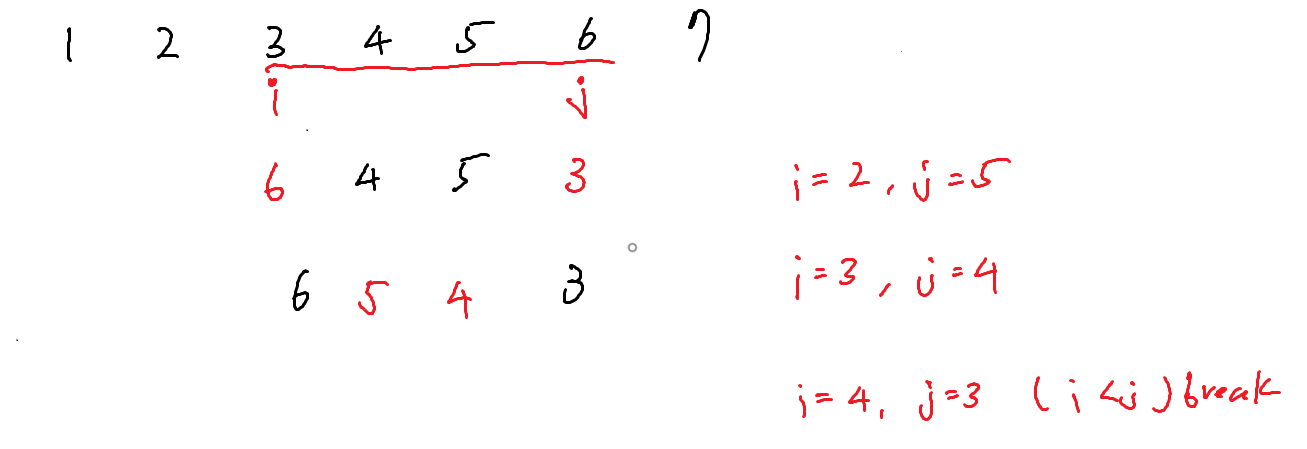 1 2 3 4 5 6 7
i j
6 4 5 3 i=2, j=5
6 5 4 3 i=3, j=4
i=4, j=3 (i<j) break